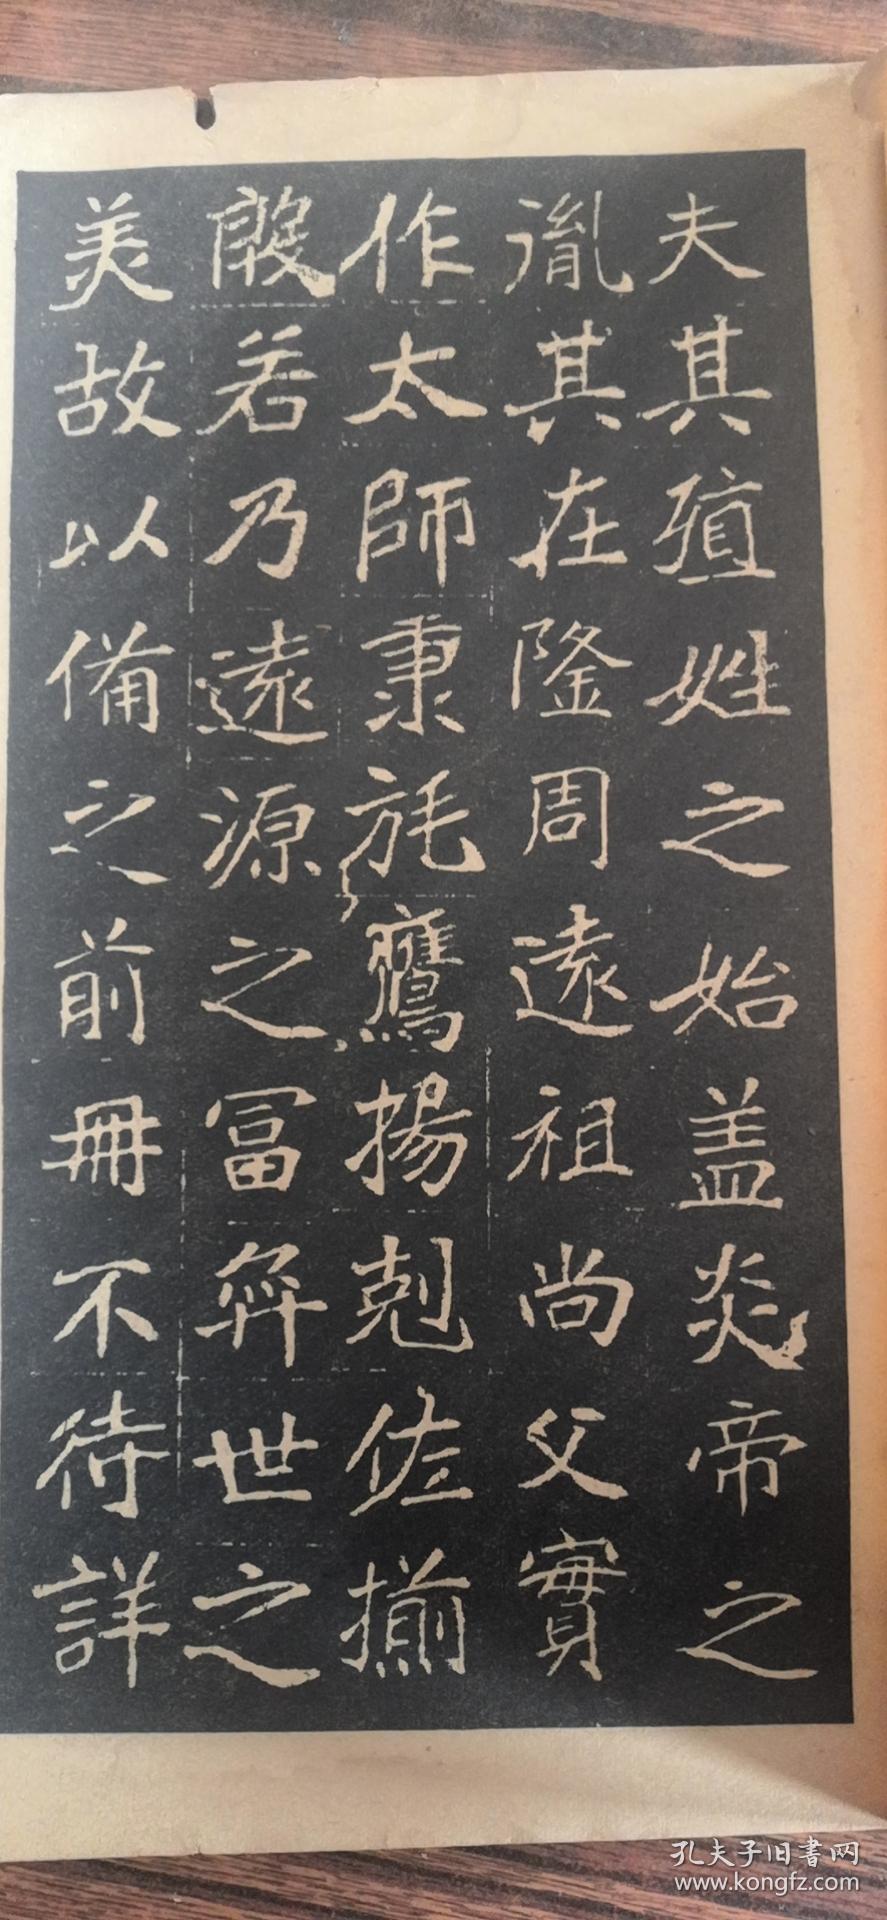 夫其殖姓之始盖炎帝之
胤其在隆周遠祖尚父實
作太師秉旄鷹揚剋佐揃
殷若乃遠源之冨弈世之
美故以備之前冊不待詳
孔夫子旧書网
www.kongfz.com